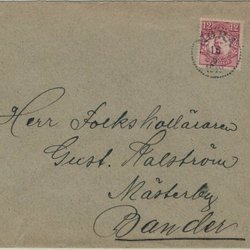 12 12
Herr Folkskolläraren
Gust. Halström
Mästerby
Bander